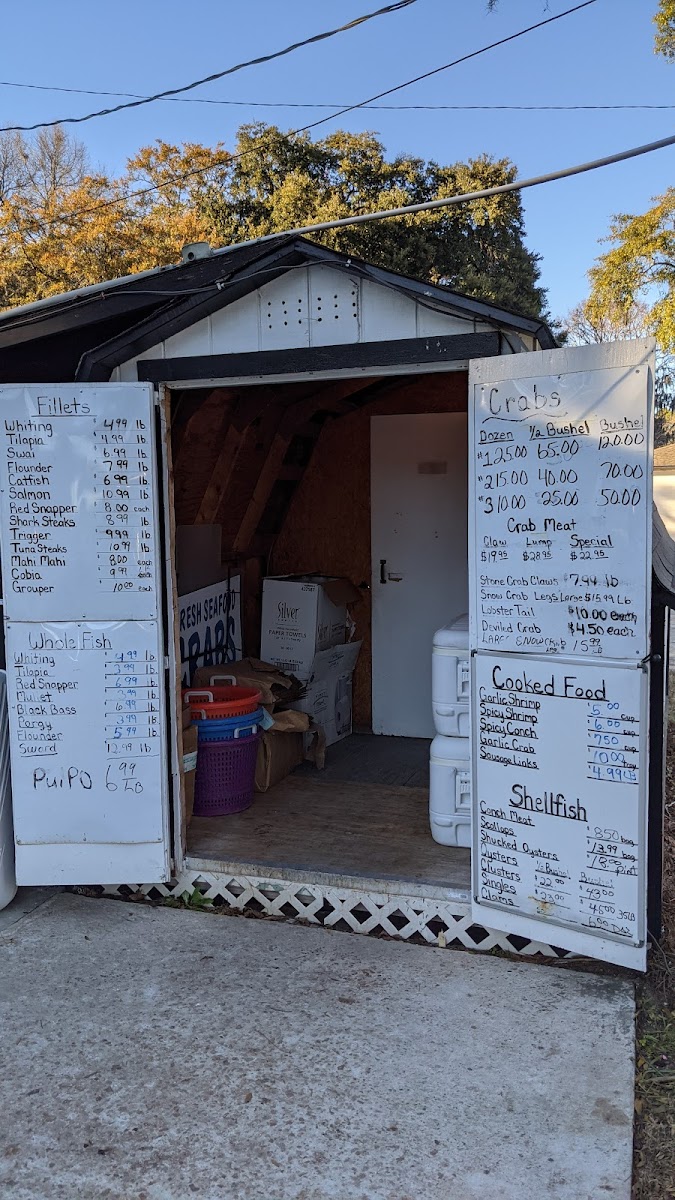 Fillets
Whiting 4.99 lb
Tilapia 4.99 lb
Swai 6.99 lb
Flounder 7.99 lb
Catfish 6.99 lb
Salmon 10.99 lb
Red Snapper 8.00 each
Shark Steaks 8.99 lb
Trigger 9.99 lb
Tuna Steaks 10.99 lb
Mahi Mahi 8.00 each
Cobia 9.99
Grouper 10.00 each
Whole Fish
Whiting 4.99 lb
Tilapia 3.99 lb
Red Snapper 6.99 lb
Mullet 3.99 lb
Black Bass 6.99 lb
Porgy 3.99 lb
Flounder 5.99 lb
Sword 12.99 lb
PulPo 6.99 Lb
FRESH SEAFOOD
CRABS
Silver
PAPER TOWELS
Silver
Crabs
Dozen 1/2 Bushel Bushel
#1 25.00 65.00 120.00
#2 15.00 40.00 70.00
#3 10.00 25.00 50.00
Crab Meat
Claw Lump Special
$19.95 $28.95 $22.95
Stone Crab Claws $7.94 lb
Snow Crab Legs Large $15.99 Lb
Lobster Tail $10.00 each
Deviled Crab $4.50 each
LARGE SNOW CRAB 15.99
Cooked Food
Garlic Shrimp 5.00 cup
Spicy Shrimp 6.00 cup
Spicy Conch 7.50 cup
Garlic Crab 10.00
Sausage Links 4.99 Lb
Shellfish
Conch Meat 8.50 bag
Scallops 12.99 bag
Shucked Oysters 18.00 Pint
Oysters 1/2 Bushel Bushel
Clusters 22.00 $43.00
Singles 23.00 $45.00 35LB
Clams 6.00 Doz